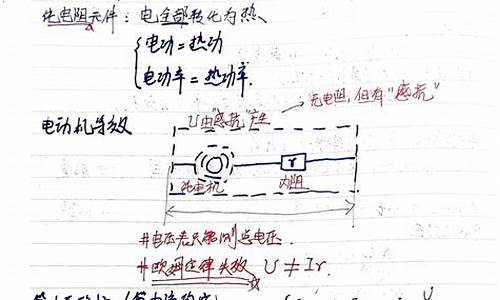 纯电阻元件：电全部转化为热、
电功=热功
电功率=热功率.
无电阻，但有“感抗”
电动机等效
U由“感抗”产生
r
纯电机 内阻
#电压表只能测总电压.
#欧姆定律失效 U≠Ir.